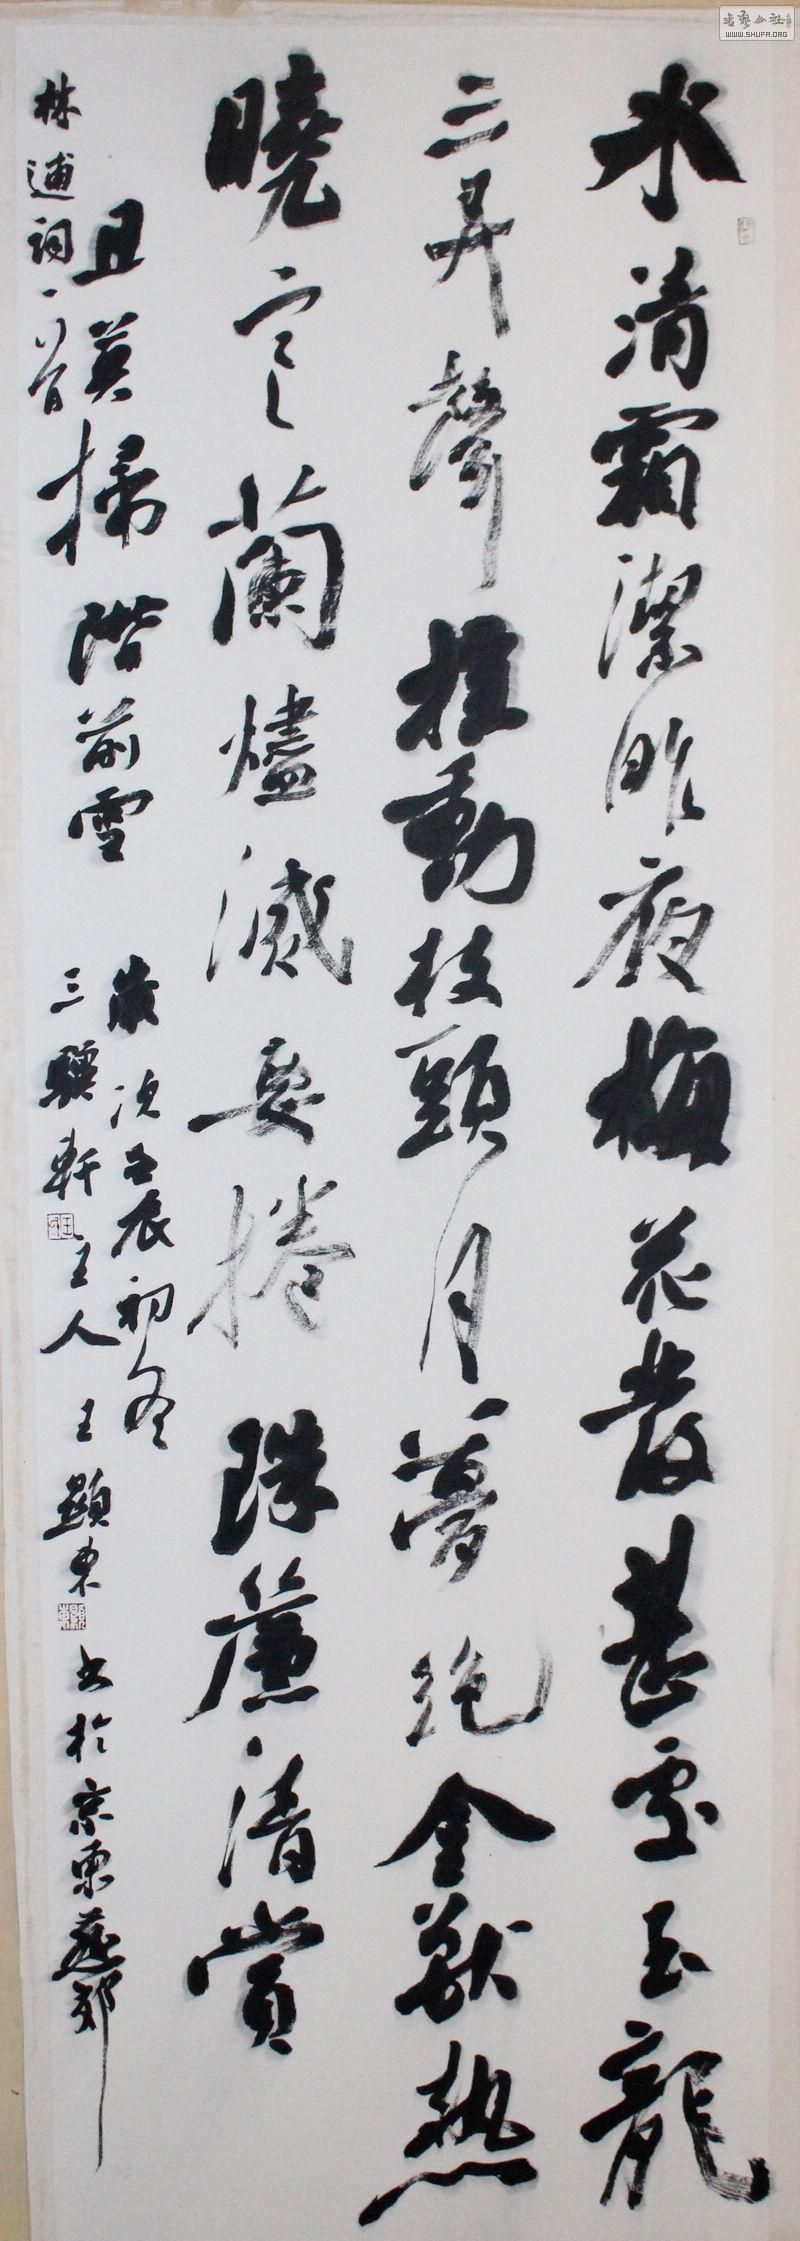 氷清霜潔昨夜梅花發甚處玉龍
三弄聲摇動枝頭月夢絕金獸熱
曉寒蘭燼滅要捲珠簾清賞
且莫掃階前雪
林逋詞一首
歲次壬辰初冬
三驥軒主人王顯東書於京東燕郊
書藝公社
WWW.SHUFA.ORG